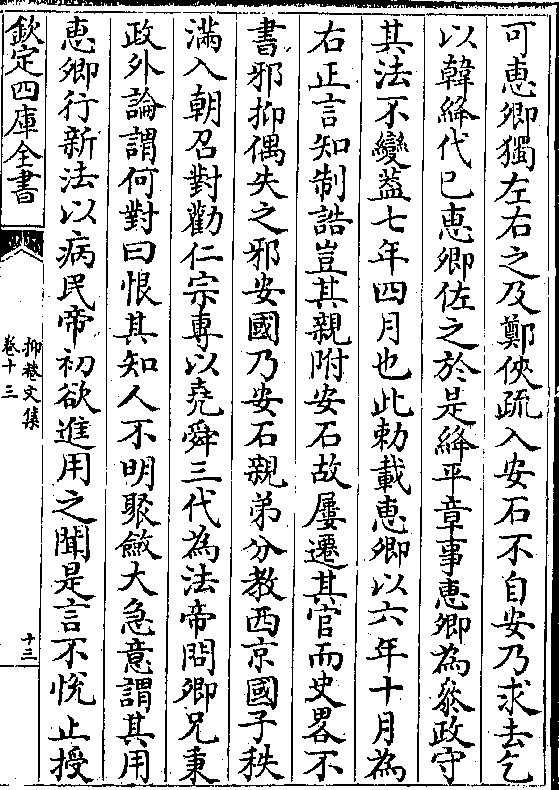 可惠卿獨左右之及鄭俠疏入安石不自安乃求去乞
以韓絳代已惠卿佐之於是絳平章事惠卿為叅政守
其法不變葢七年四月也此勅載惠卿以六年十月為
右正言知制誥豈其親附安石故屢遷其官而史畧不
書邪抑偶失之邪安國乃安石親弟分教西京國子秩
滿入朝召對勸仁宗專以堯舜三代為法帝問卿兄秉
政外論謂何對曰恨其知人不明聚斂大急意謂其用
惠卿行新法以病民帝初欲進用之聞是言不悅止授
欽定四庫全書
抑菴文集
卷十三
十三